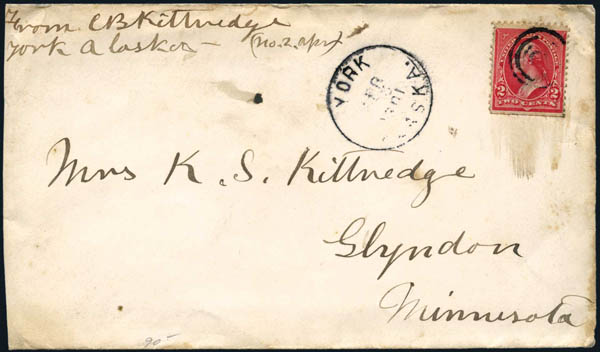 From C B Kittredge
York Alaska — (No. 2. Apr)
YORK
ALASKA.
UNITED STATES
2 2
TWO CENTS
Mrs K. S. Kittredge
Glyndon
Minnesota
20-